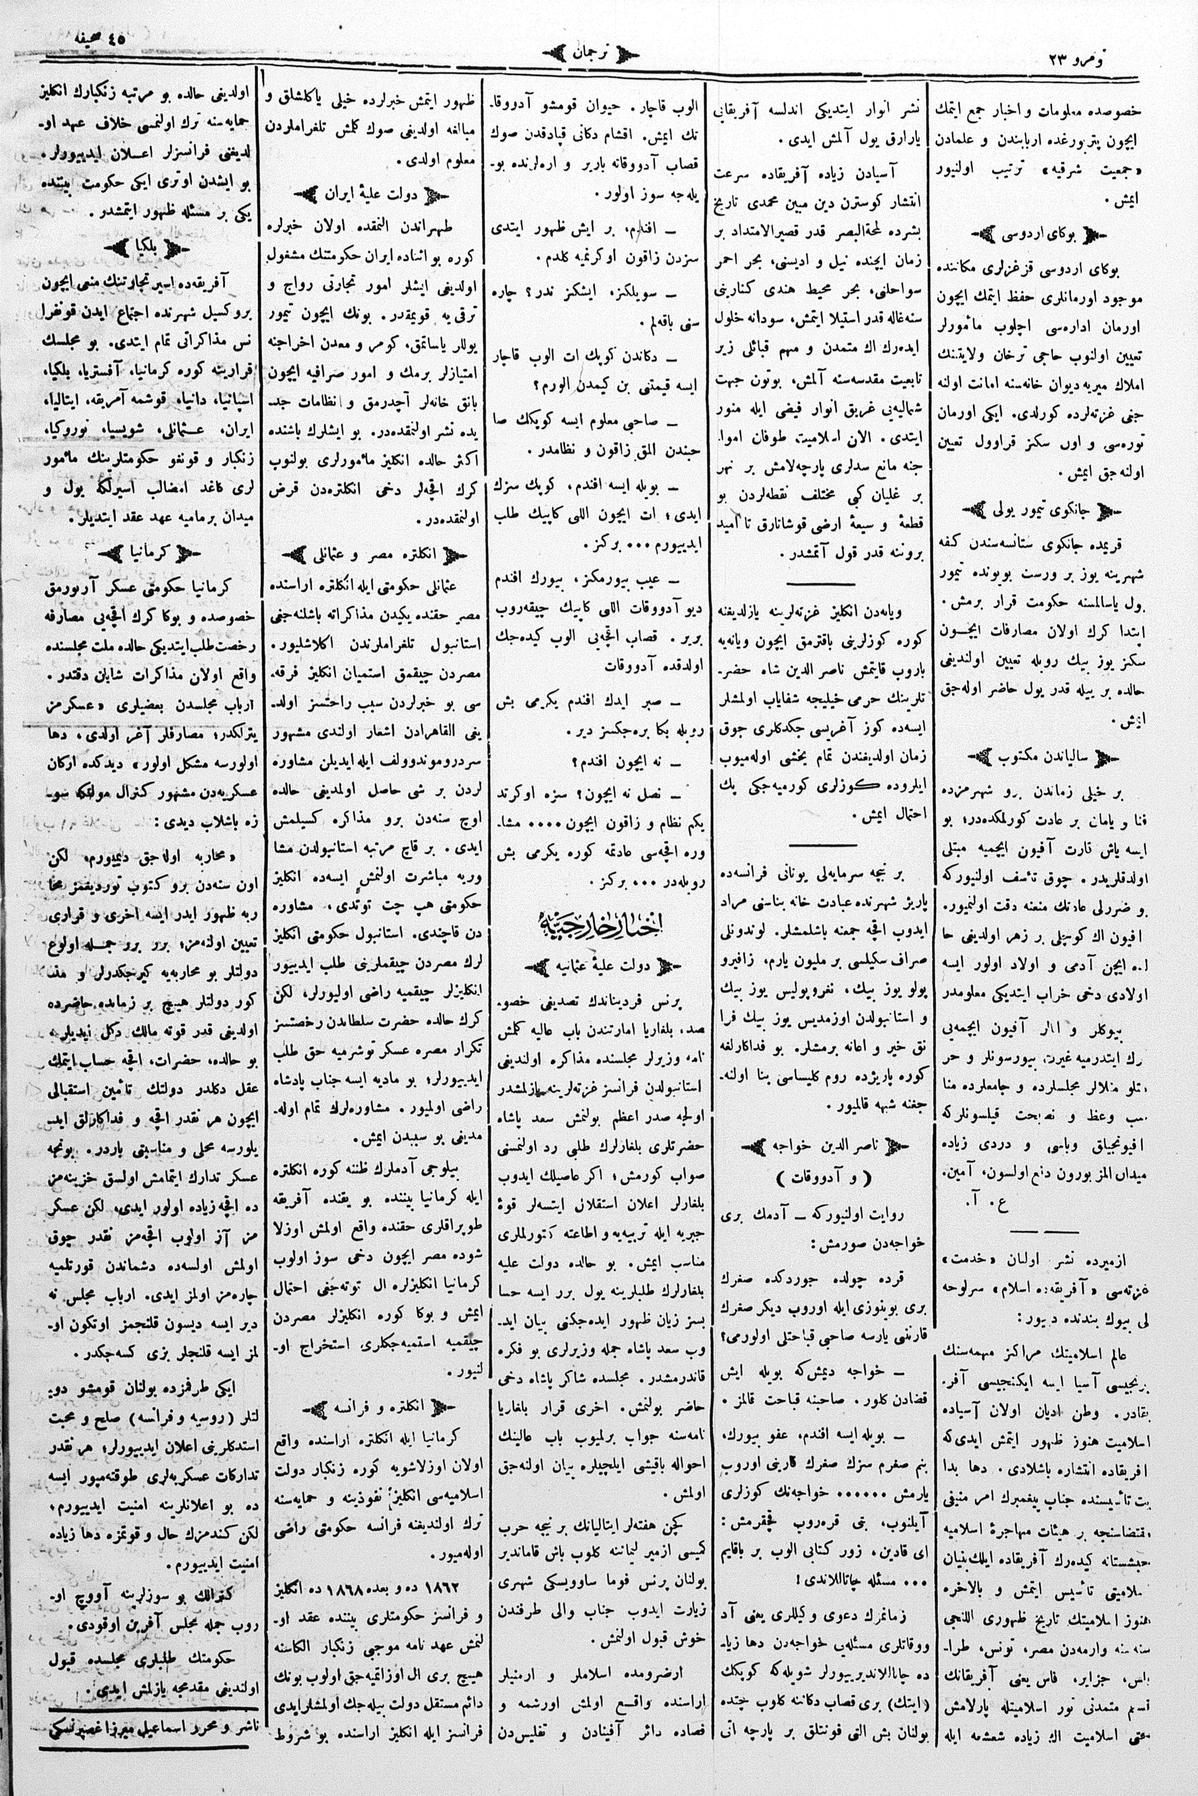 نومرو ٢٣
ترجمان
٤٥ صحیفه
خصوصده معلومات و اخبار جمع ایتمك
ایچون پتربورغده اربابندن و علمادن
«جمعیت شرقیه» ترتیب اولنیور
ایمش.
بوكای اردوسی
بوكای اردوسی قزغزلری مكاننده
موجود اورمانلری حفظ ایتمك ایچون
اورمان اداره‌سی اچلوب مأمورلر
تعیین اولنوب حاجی ترخان ولایتنك
املاك میریه دیوان خانه‌سنه امانت اولنه
جغی غزته‌لرده كورلدی. ایكی اورمان
توره‌سی و اون سكز قراوول تعیین
اولنه‌جق ایمش.
جانكوی تیمور یولی
قریمده جانكوی ستانسه‌سندن كفه
شهرینه یوز بر ورست بویونده تیمور
یول یاسالمسنه حكومت قرار برمش.
ابتدا كرك اولان مصارفات ایچون
سكز یوز بیك روبله تعیین اولندیغی
حالده بر ییله قدر یول حاضر اوله‌جق
ایمش.
سالیاندن مكتوب
بر خیلی زماندن برو شهرمزده
فنا و یامان بر عادت كورلمكده‌در؛ بو
ایسه یاش قارت آفیون ایچمیه مبتلی
اولدقلریدر. چوق تأسف اولنیوركه
بو ضررلی عادتك منعنه دقت اولنمیور.
افیون اك كوچیلی بر زهر اولدیغی حا
لده ایچن آدمی و اولاد اولور ایسه
اولادی دخی خراب ایتدیكی معلومدر
بیوكلر و آفیون ایچمه‌یی
ترك ایتدرمیه غیرت بیورسونلر و حر
متلو منلالر مجلسلرده و جامعلرده منا
سب وعظ و نصیحت قیلسونلركه
افیونجیلق وباسی و دردی زیاده
میدان المز بورون دفع اولسون، آمین.
ع. آ.
ازمیرده نشر اولنان «خدمت»
غزته‌سی «آفریقه‌ده اسلام» سرلوحه
لی بیوك بندنده دیور:
عالم اسلامیتك مراكز مهمه‌سنك
برنجیسی آسیا ایسه ایكنجیسی آفر.
یقادر. وطن ادیان اولان آسیاده
اسلامیت هنوز ظهور ایتمش ایدی‌كه
افریقاده انتشاره باشلادی. دها بدا
یت تأسیسنده جناب پیغمبرك امر منیفی
اقتضاسنجه بر هیئات مهاجرهٔ اسلامیه
حبشستانه كیده‌رك آفریقاده ایلك بنیان
اسلامیتی تأسیس ایتمش و بالاخره
هنوز اسلامیتك تاریخ ظهوری اللنجی
سنه‌سنه وارمه‌دن مصر، تونس، طرا.
بلس، جزایر، فاس یعنی آفریقانك
قسم متمدنی نور اسلامیتله پارلامش
حتی اسلامیت اك زیاده شعشعه ایله
نشر انوار ایتدیكی اندلسه آفریقانی
یارارق یول آلمش ایدی.
آسیادن زیاده آفریقاده سرعت
انتشار كوسترن دین مبین محمدی تاریخ
بشرده لمحةالبصر قدر قصیرالامتداد بر
زمان ایچنده نیل و ادیسنی، بحر احمر
سواحلنی، بحر محیط هندی كنارینی
سنه‌غاله قدر استیلا ایتمش، سودانه حلول
ایده‌رك اك متمدن و مهم قبائلی زیر
تابعیت مقدسه‌سنه آلمش، بوتون جهت
شمالیه‌یی غریق انوار فیضی ایله منور
ایتدی. الان اسلامیت طوفان اموا.
جنه مانع سدلری پارچه‌لامش بر نهر
بر غلیان كبی مختلف نقطه‌لردن بو
قطعهٔ و سیعهٔ ارضی قوشاتارق تا امید
بروننه قدر قول آتمشدر.
ویانه‌دن انكلیز غزته‌لرینه یازلدیغنه
كوره كوزلرینی باقدرمق ایچون ویانه‌یه
باروب قایتمش ناصر الدین شاه حضر.
تلرینك حرمی خیلیجه شفایاب اولمشلر
ایسه‌ده كوز آغریسی چكدكلری چوق
زمان اولدیغندن تمام یخشی اوله‌میوب
ایلروده كوزلری كورمیه‌جكی پك
احتمال ایمش.
بر نیچه سرمایه‌لی یونانی فرانسه‌ده
پاریژ شهرنده عبادت خانه بناسنی مراد
ایدوب اقچه جمعنه باشلمشلر. لوندونلی
صراف سكیلسی بر ملیون یارم، زافیرو
پولو یوز بیك، نفروپولیس یوز بیك
و استانبولدن اوزمدیس یوز بیك فرا
نق خیر و اعانه برمشلر. بو فداكارلغه
كوره پاریژده روم كلیساسی بنا اولنه.
جغنه شبهه قالمیور.
ناصر الدین خواجه
( و آدووقات )
روایت اولنیوركه ــ آدمك بری
خواجه‌دن صورمش:
قرده چولده جوردكده صغرك
بری بوینوزی ایله اوروب دیكر صغرك
قارننی یارسه صاحبی قباحتلی اولورمی؟
ــ خواجه دیمش‌كه بویله ایش
قضادن كلور. صاحبنه قباحت قالمز.
ــ بویله ایسه افندم، عفو بیورك،
بنم صغرم سزك صغرك قارنی اوروب
یارمش ...... خواجه‌نك كوزلری
آیلنوب، بنی قره‌روب قچقرمش:
ای قادین، زور كتابی الوب بر باقایم
... مسئله چاتاللاندی!
زمانمزك دعوی وكیللری یعنی آد
ووقاتلری مسئله‌یی خواجه‌دن دها زیا.
ده چاتاللاندیرییورلر شویله‌كه كوپكك
(ایتك) بری قصاب دكاننه كلوب چتده
بولنان بش التی فونتلق بر پارچه اتی
الوب قاچار. حیوان قومشو آدووقا.
تك ایمش. اقشام دكانی قپادقدن صوك
قصاب آدووقاته باریر و اره‌لرنده بو.
یله‌جه سوز اولور.
ــ افندم، بر ایش ظهور ایتدی
سزدن زاقون اوكرنمیه كلدم.
ــ سویلكز، ایشكز ندر؟ چاره
سنی باقه‌لم.
ــ دكاندن كوپك ات الوب قاچار
ایسه قیمتنی بن كیمدن الورم؟
ــ صاحبی معلوم ایسه كوپكك صا
حبندن المق زاقون و نظامدر.
ــ بویله ایسه افندم، كوپك سزك
ایدی؛ ات ایچون اللی كاپیك طلب
ایدییورم ... بركز.
ــ عیب بیورمكز، بیورك افندم
دیو آدووقات اللی كاپیك چیقه‌روب
بریر. قصاب اقچه‌یی الوب كیده‌جك
اولدقده آدووقات
ــ صبر ایدك افندم یكرمی بش
روبله بكا بره‌جكسز دیر.
ــ نه ایچون افندم؟
ــ نصل نه ایچون؟ سزه اوكرتد
یكم نظام و زاقون ایچون .... مشا.
وره اقچه‌سی عادتمه كوره یكرمی بش
روبله‌در ... بركز.
اخبار خارجیه
دولت علیهٔ عثمانیه
پرنس فردیناندك تصدیقی خصو.
صد، بلغاریا امارتندن باب عالیه كلمش
نامه وزیرلر مجلسنده مذاكره اولندیغی
استانبولدن فرانسز غزته‌لرینه یازلمشدر
اولجه صدر اعظم بولنمش سعد پاشاه
حضرتلری بلغارلرك طلبی رد اولنمسنی
صواب كورمش؛ اكر عاصیلك ایدوب
بلغارلر اعلان استقلال ایتسه‌لر قوهٔ
جبریه ایله تربیه‌یه و اطاعته كتورلملری
مناسب ایمش. بو حالده دولت علیه
بلغارلرك طلبلرینه یول بر ایسه حسا
بسز زیان ظهور ایده‌جكنی بیان اید.
وب سعد پاشاه جمله وزیرلری بو فكره
قاندرمشدر. مجلسده شاكر پاشاه دخی
حاضر بولنمش. اخری قرار بلغاریا
نامه‌سنه جواب برلمیوب باب عالینك
احواله باقیشی ایلچیلره بیان اولنه‌جق
اولمش.
كچن هفته‌لر ایتالیانك بر نیچه حرب
كمیسی ازمیر لیماننه كلوب باش قماندیر
بولنان پرنس قوما ساوویسكی شهری
زیارت ایدوب جناب والی طرفندن
خوش قبول اولنمش.
ارضرومده اسلاملر و ارمنیلر
اراسنده واقع اولمش اورشمه و
قصاده دائر آفینادن و تفلیس‌دن
ظهور ایتمش خبرلرده خیلی یاكلشلق و
مبالغه اولدیغی صوك كلمش تلغراملردن
معلوم اولدی.
دولت علیهٔ ایران
طهراندن النمقده اولان خبرلره
كوره بو اثناده ایران حكومتنك مشغول
اولدیغی ایشلر امور تجارتی رواج و
ترقی‌یه قویمقدر. بونك ایچون تیمور
یوللر یاساتمق، كومر و معدن اخراجنه
امتیازلر برمك و امور صرافیه ایچون
بانق خانه‌لر آچدرمق و نظامات جد.
یده نشر اولنمقده‌در. بو ایشلرك باشنده
اكثر حالده انكلیز مأمورلری بولنوب
كرك اقچه‌لر دخی انكلتره‌دن قرض
اولنمقده‌در.
انكلتره مصر و عثمانلی
عثمانلی حكومتی ایله انكلتره اراسنده
مصر حقنده یكیدن مذاكراته باشلنه‌جغی
استانبول تلغراملرندن اكلاشلیور.
مصردن چیقمق استمیان انكلیز فرقه.
سی بو خبرلردن سبب راحتسز اولد.
یغی القاهرادن اشعار اولندی مشهور
سردروموندوولف ایله ایدیلن مشاوره
لردن بر شی حاصل اولمدیغی حالده
اوچ سنه‌دن برو مذاكره كسیلمش
ایدی. بر قاچ مرتبه استانبولدن مشا
وریه مباشرت اولنمش ایسه‌ده انكلیز
حكومتی هپ چت توتدی، مشاوره
دن قاچندی. استانبول حكومتی انكلیز
لرك مصردن چیقملرینی طلب ایدییور
انكلیزلر چیقمیه راضی اولیورلر، لكن
كرك حالده حضرت سلطاندن رخصتسز
تكرار مصره عسكر توشرمیه حق طلب
ایدییورلر؛ بو مادیه ایسه جناب پادشاه
راضی اولمیور. مشاوره‌لرك تمام اوله.
مدیغی بو سببدن ایمش.
بیلوجی آدملرك ظننه كوره انكلتره
ایله كرمانیا بیننده بو یقنده آفریقه
طوپراقلری حقنده واقع اولمش اوزلا
شوده مصر ایچون دخی سوز اولوب
كرمانیا انكلیزلره ال توته‌جغی احتمال
ایمش و بوكا كوره انكلیزلر مصردن
چیقمیه استمیه‌جكلری استخراج او.
لنیور.
انكلتره و فرانسه
كرمانیا ایله انكلتره اراسنده واقع
اولان اوزلاشویه كوره زنكبار دولت
اسلامیه‌سی انكلیز نفوذینه و حمایه‌سنه
ترك اولندیغنه فرانسه حكومتی راضی
اوله‌میور.
١٨٦٢ ده و بعده ١٨٦٨ ده انكلیز
و فرانسز حكومتلری بیننده عقد او.
لنمش عهد نامه موجبی زنكبار الكاسنه
هیچ بری ال اوزاتمیه‌جق اولوب بونك
دائم مستقل دولت بیله‌جك اولمشلرایدی
فرانسز ایله انكلیز اراسنده بو شروط
اولدیغی حالده بو مرتبه زنكبارك انكلیز
حمایه‌سنه ترك اولنمسی خلاف عهد او.
لدیغنی فرانسزلر اعلان ایدییورلر.
بو ایشدن اوتری ایكی حكومت بیننده
یكی بر مسئله ظهور ایتمشدر.
بلكیا
آفریقه‌ده اسیر تجارتنك منعی ایچون
بروكسیل شهرنده اجتماع ایدن قونفرا
نس مذاكراتی تمام ایتدی. بو مجلسك
قرارینه كوره كرمانیا، آفستریا، بلكیا،
اسپانیا، دانیا، قوشمه آمریقه، ایتالیا،
ایران، عثمانلی، شویسیا، نوروكیا،
زنكبار و قونغو حكومتلرینك مأمور
لری كاغد امضالب اسیرلكه یول و
میدان برمامیه عهد عقد ایتدیلر.
كرمانیا
كرمانیا حكومتی عسكر آرتدرمق
خصوصده و بوكا كرك اقچه‌یی مصارفه
رخصت طلب ایتدیكی حالده ملت مجلسنده
واقع اولان مذاكرات شایان دقتدر.
ارباب مجلسدن بعضیلری «عسكرمز
یترلكدر؛ مصارفلر آغر اولدی، دها
اولورسه مشكل اولور» دیدكده اركان
عسكریه‌دن مشهور كنرال مولتكه سو.
زه باشلاب دیدی:
«محاربه اولاجق دیمیورم، لكن
اون سنه‌دن برو كتوب توردیغمز محا
ربه ظهور ایدر ایسه اخری و قراری
تعیین اولنه‌مز؛ برر برو جمله اولوغ
دولتلر بو محاربه‌یه كیره‌جكدرلر و مذ
كور دولتلر هیچ بر زمانده حاضرده
اولدیغی قدر قوته مالك دكل ایدیلر.
بو حالده، حضرات، اقچه حساب ایتمك
عقل دكلدر دولتك تأمین استقبالی
ایچون هر نقدر اقچه و فداكارلق اید.
یلورسه محلی و مناسبتی باردر. بونجه
عسكر تدارك ایتمامش اولسق خزینه‌مز
ده اقچه زیاده اولور ایدی، لكن عسكر
مز آز اولوب اقچه‌مز نقدر چوق
اولمش اولسه‌ده دشماندن قورتلمیه
چاره‌مز اولمز ایدی. ارباب مجلس نه
دیر ایسه دیسون قلنجمز اوتكون او.
لمز ایسه قلنجلر بزی كسه‌جكدر.
ایكی طرفمزده بولنان قومشو دو.
لتلر (روسیه و فرانسه) صلح و محبت
استدكلرینی اعلان ایدییورلر؛ هر نقدر
تداركات عسكریه‌لری طوقنه‌میور ایسه
ده بو اعلانلرینه امنیت ایدییورم؛
لكن كندمزك حال و قوتمزه دها زیاده
امنیت ایدییورم.
كنرالك بو سوزلرینه آووچ او.
روب جمله مجلس آفرین اوقودی.
حكومتك طلبلری مجلسده قبول
اولندیغی مقدمجه یازلمش ایدی.
ناشر و محرر اسماعیل میرزا غصپرنسكی